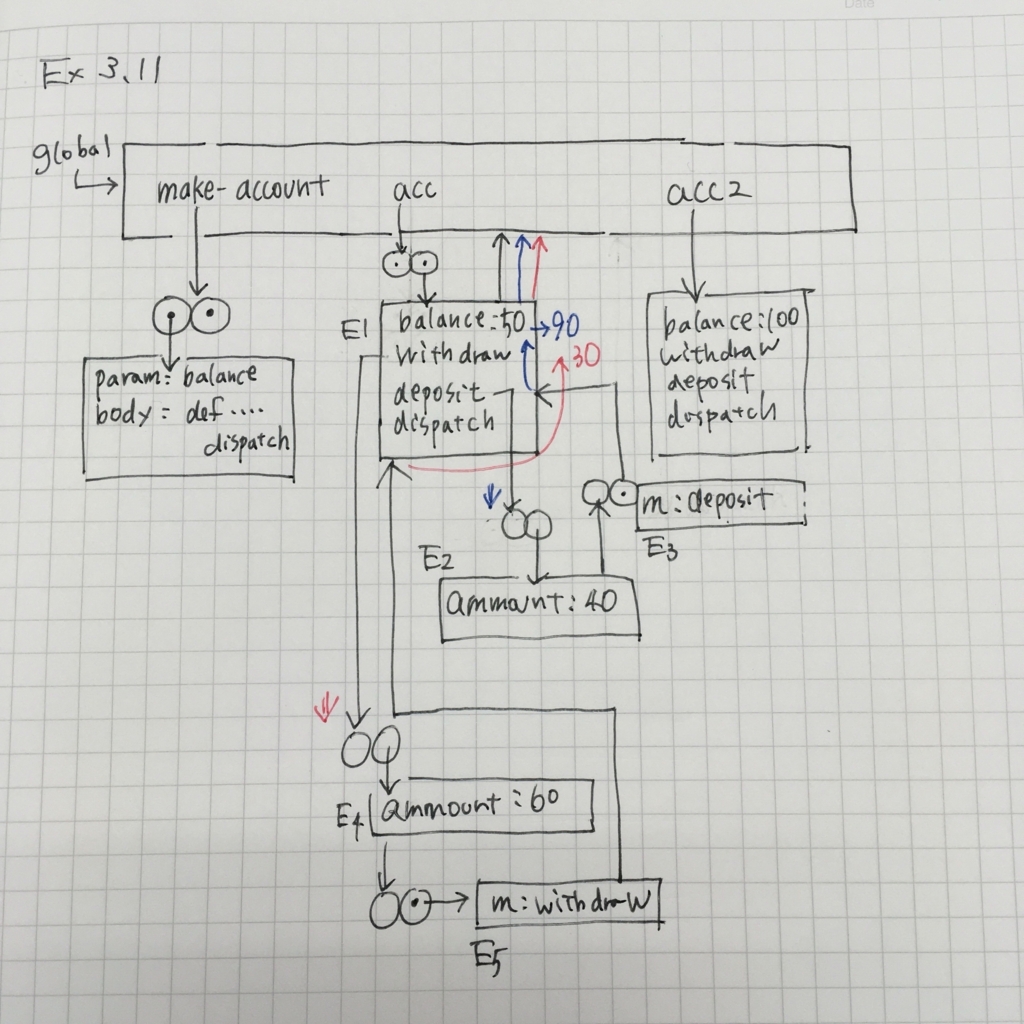 Date
Ex 3.11
global
make-account
acc
acc2
E1
balance:50
→90
withdraw
30
deposit
dispatch
balance:100
withdraw
deposit
dospatch
param: balance
body: def ....
dispatch
m: deposit
E3
E2
ammount: 40
E4
ammount: 60
m: withdraw
E5